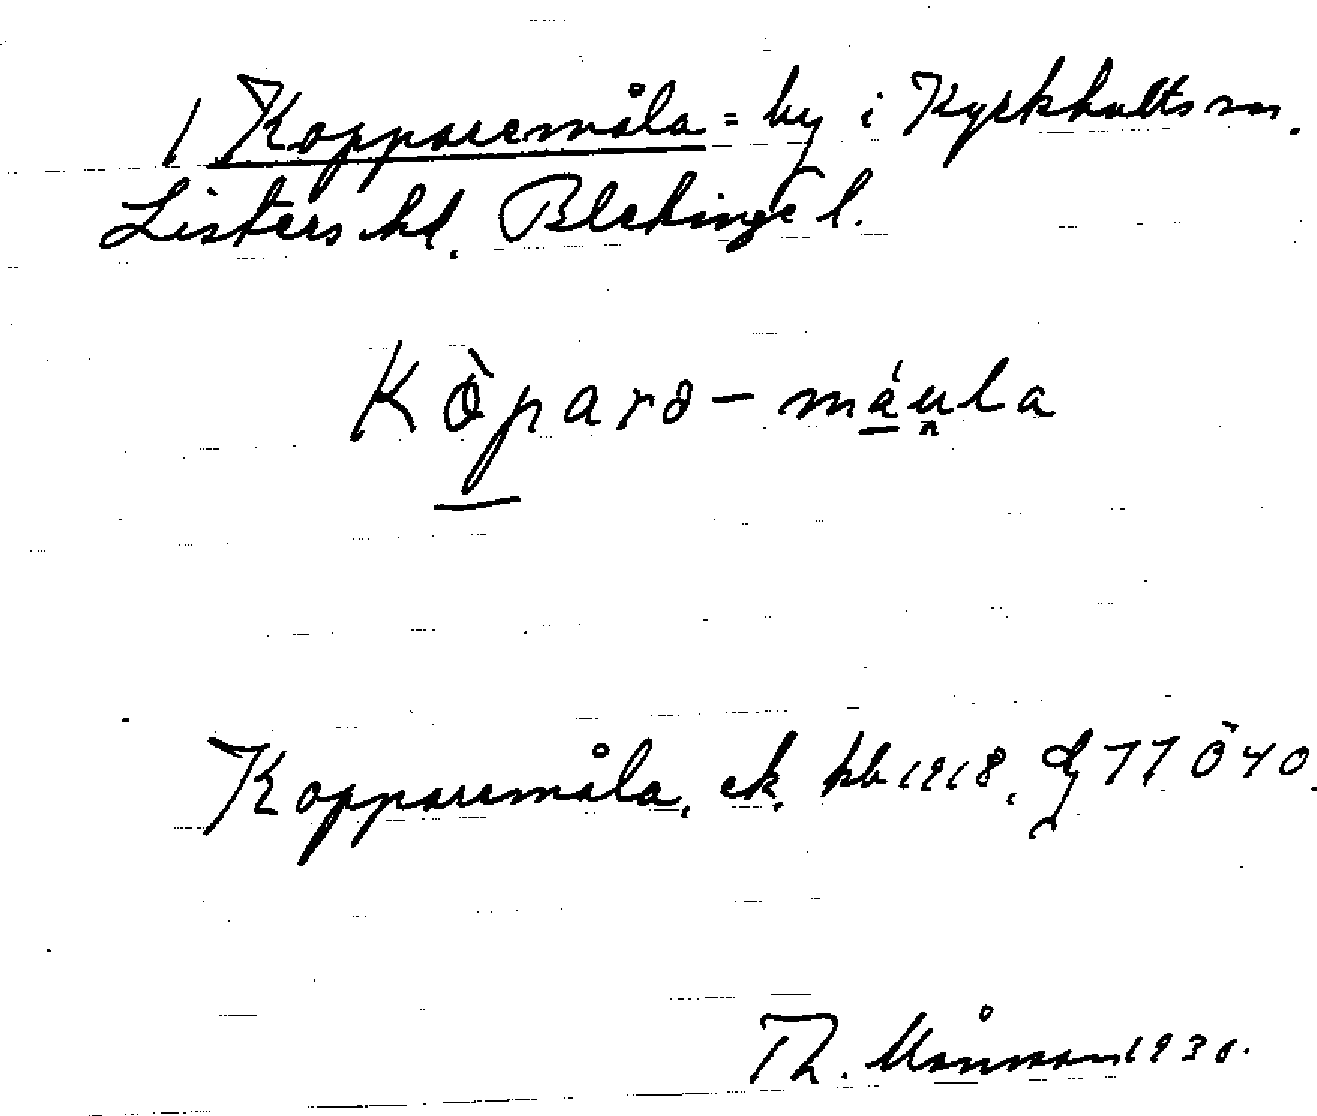 1 Kopparemåla = by i Kyrkhults sn.
Listers hd. Blekinge l.
Kòparə-má̱u̯la
Kopparemåla, ek. kb 1918,
Th. Månsson 1930.